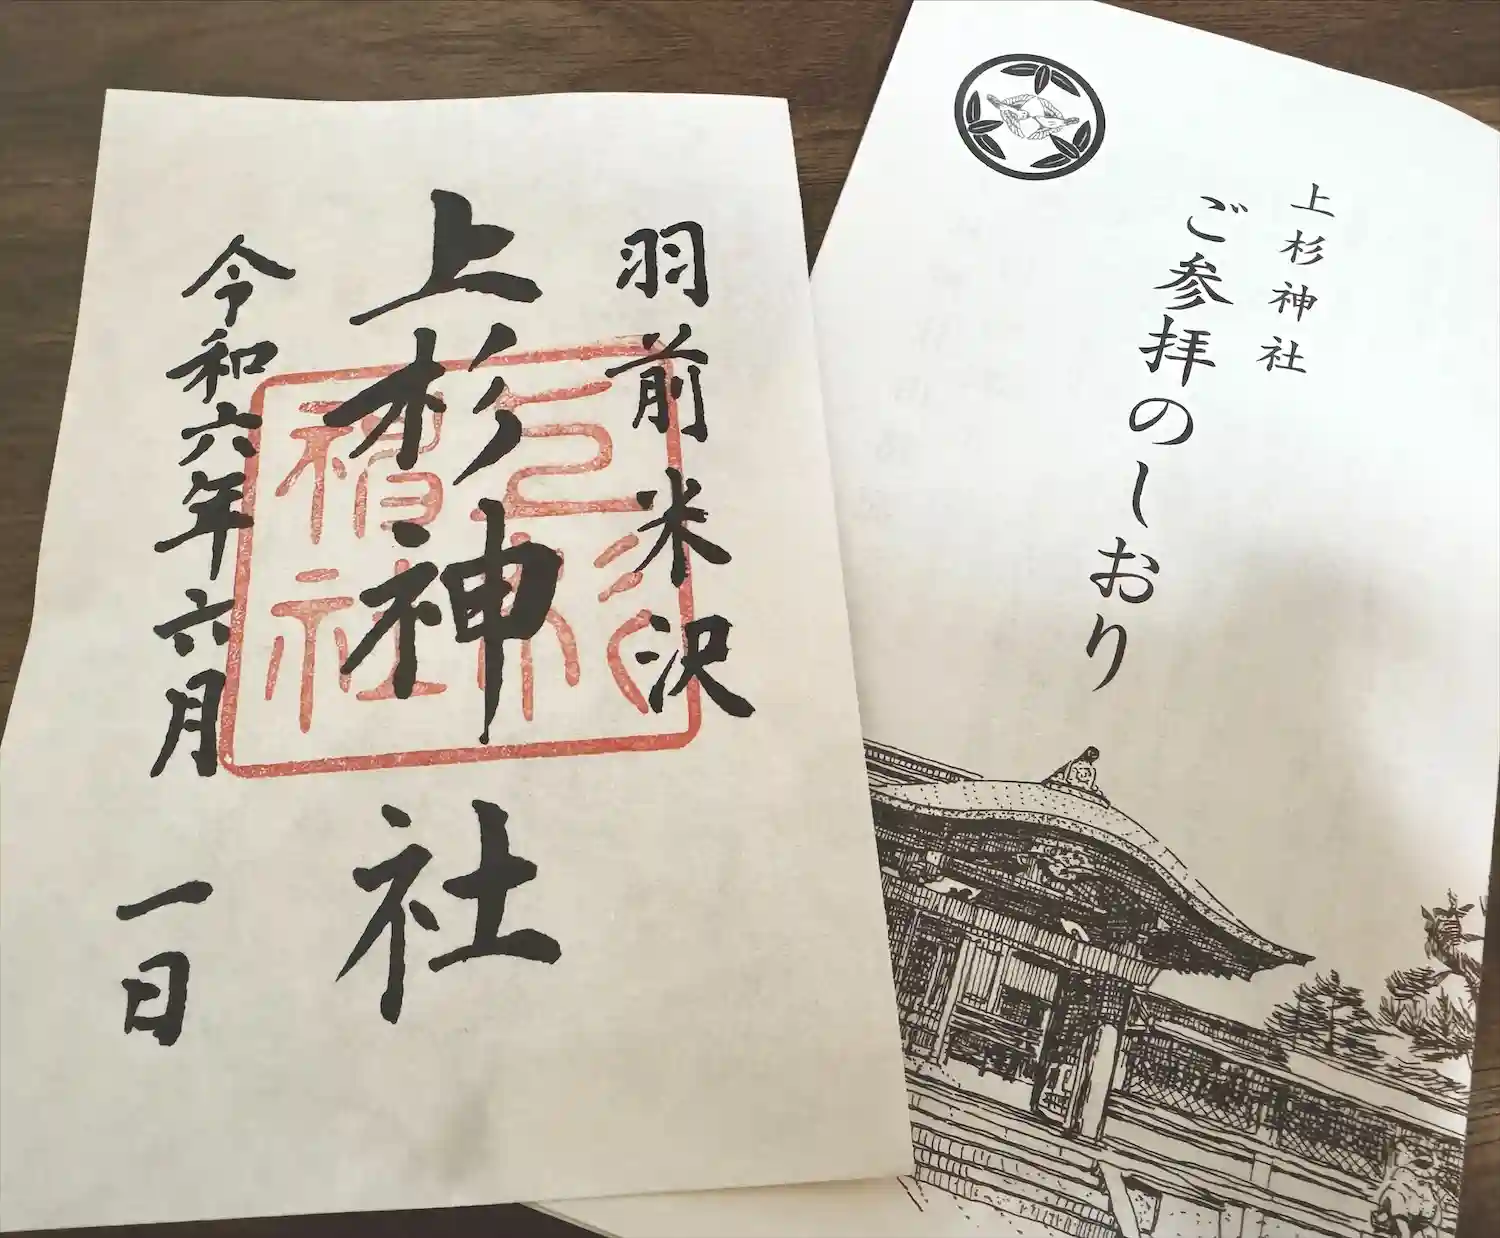 羽前米沢
上杉神社
令和六年六月一日
上杉神社
上杉神社
ご参拝のしおり